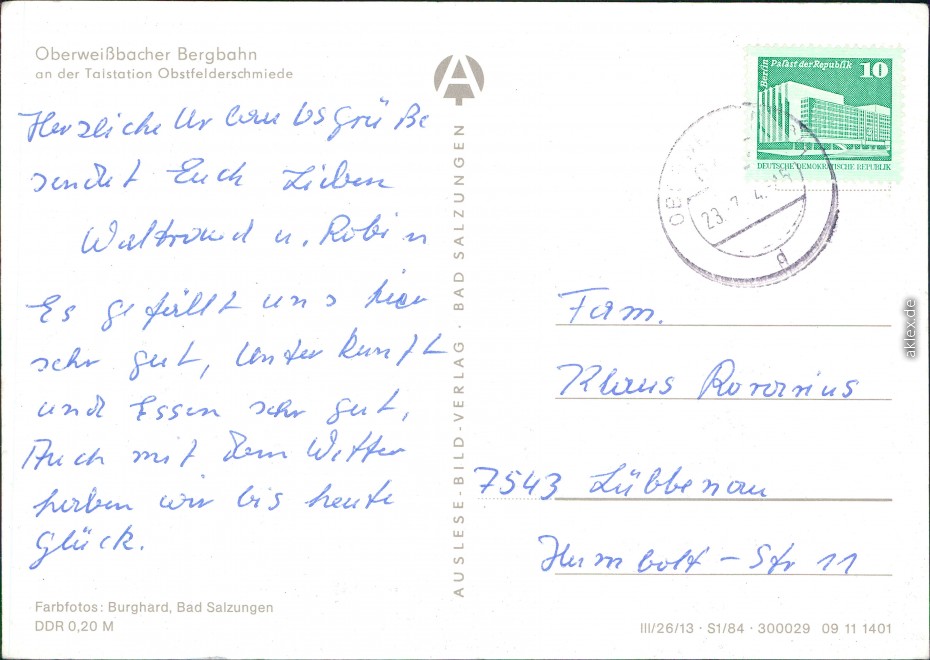 Oberweißbacher Bergbahn
an der Talstation Obstfelderschmiede
Herzliche Urlaubsgrüße
sendet Euch Lieben
Waltraud u. Robin
Es gefällt uns hier
sehr gut, Unterkunft
und Essen sehr gut,
Auch mit dem Wetter
haben wir bis heute
Glück.
Farbfotos: Burghard, Bad Salzungen
DDR 0,20 M
A
AUSLESE-BILD-VERLAG · BAD SALZUNGEN
Berlin Palast der Republik 10
DEUTSCHE DEMOKRATISCHE REPUBLIK
Fam.
Klaus
7543 Lübbenau
Humbolt-Str 11
III/26/13 · S1/84 · 300029 09 11 1401
aklex.de